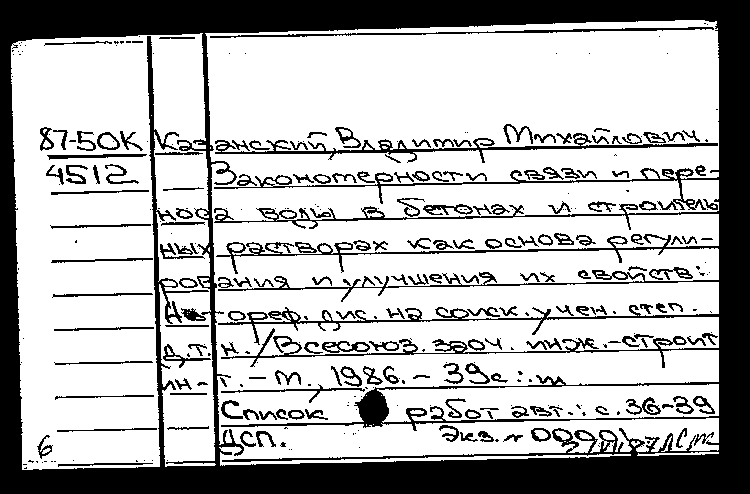 87-50К Казанский, Владимир Михайлович.
4512 Закономерности связи и пере-
носа воды в бетонах и строитель
ных растворах как основа регули-
рования и улучшения их свойств:
Автореф. дис. на соиск. учен. степ.
д.т.н. / Всесоюз. заоч. инж.-строит
ин-т. - М., 1986. - 39с.: ил
Список работ авт.: с. 36-39
ДСП. Экз. №
6